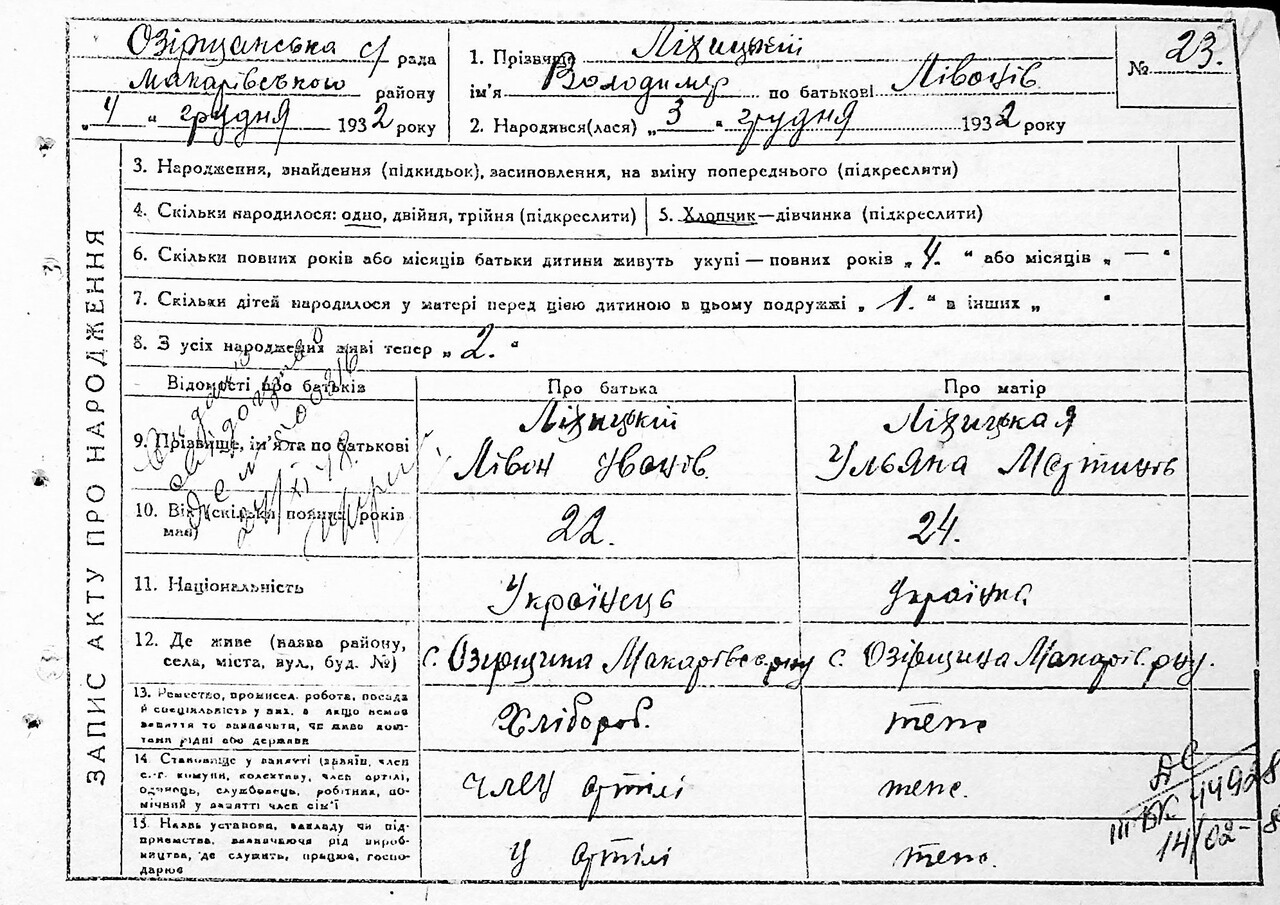 Озірщанська с/ рада
Макарівського району
„4“ грудня 1932 року
1. Прізвище Ліхицькій
ім'я Володимер по батькові Лівонів
2. Народився(лася) „3“ грудня 1932 року
№ 23.
ЗАПИС АКТУ ПРО НАРОДЖЕННЯ
3. Народження, знайдення (підкидьок), засиновлення, на зміну попереднього (підкреслити)
4. Скільки народилося: одно, двійня, трійня (підкреслити)
5. Хлопчик—дівчинка (підкреслити)
6. Скільки повних років або місяців батьки дитини живуть укупі—повних років „4.“ або місяців „—“
7. Скільки дітей народилося у матері перед цією дитиною в цьому подружжі „1.“ в інших „ “
8. З усіх народжених живі тепер „2.“
Відомості про батьків Про батька Про матір
9. Прізвище, ім'я та по батькові
Ліхицькій
Лівон Іванів.
Ліхицькая
Ульяна Мартинів
10. Вік (скільки повних років має) 22. 24.
11. Національність Українець Українка
12. Де живе (назва району,
села, міста, вул., буд. №)
с. Озірщина Макарівськ. р-ну
с. Озірщина Макарів. р-ну.
13. Ремество, промисел, робота, посада
й спеціяльність у них, а якщо немає
заняття то зазначити, чи живе кош-
тами рідні або держави
Хлібороб.
теж
14. Становище у занятті (хазяїн, член
с.-г. комуни, колективу, член артілі,
одинець, службовець, робітник, по-
мічний у занятті член сім'ї
член артілі
теж.
15. Назва установи, закладу чи під-
приємства, зазначаючи рід вироб-
ництва, де служить, працює, госпо-
дарює
У артілі
теж.
14/02-8